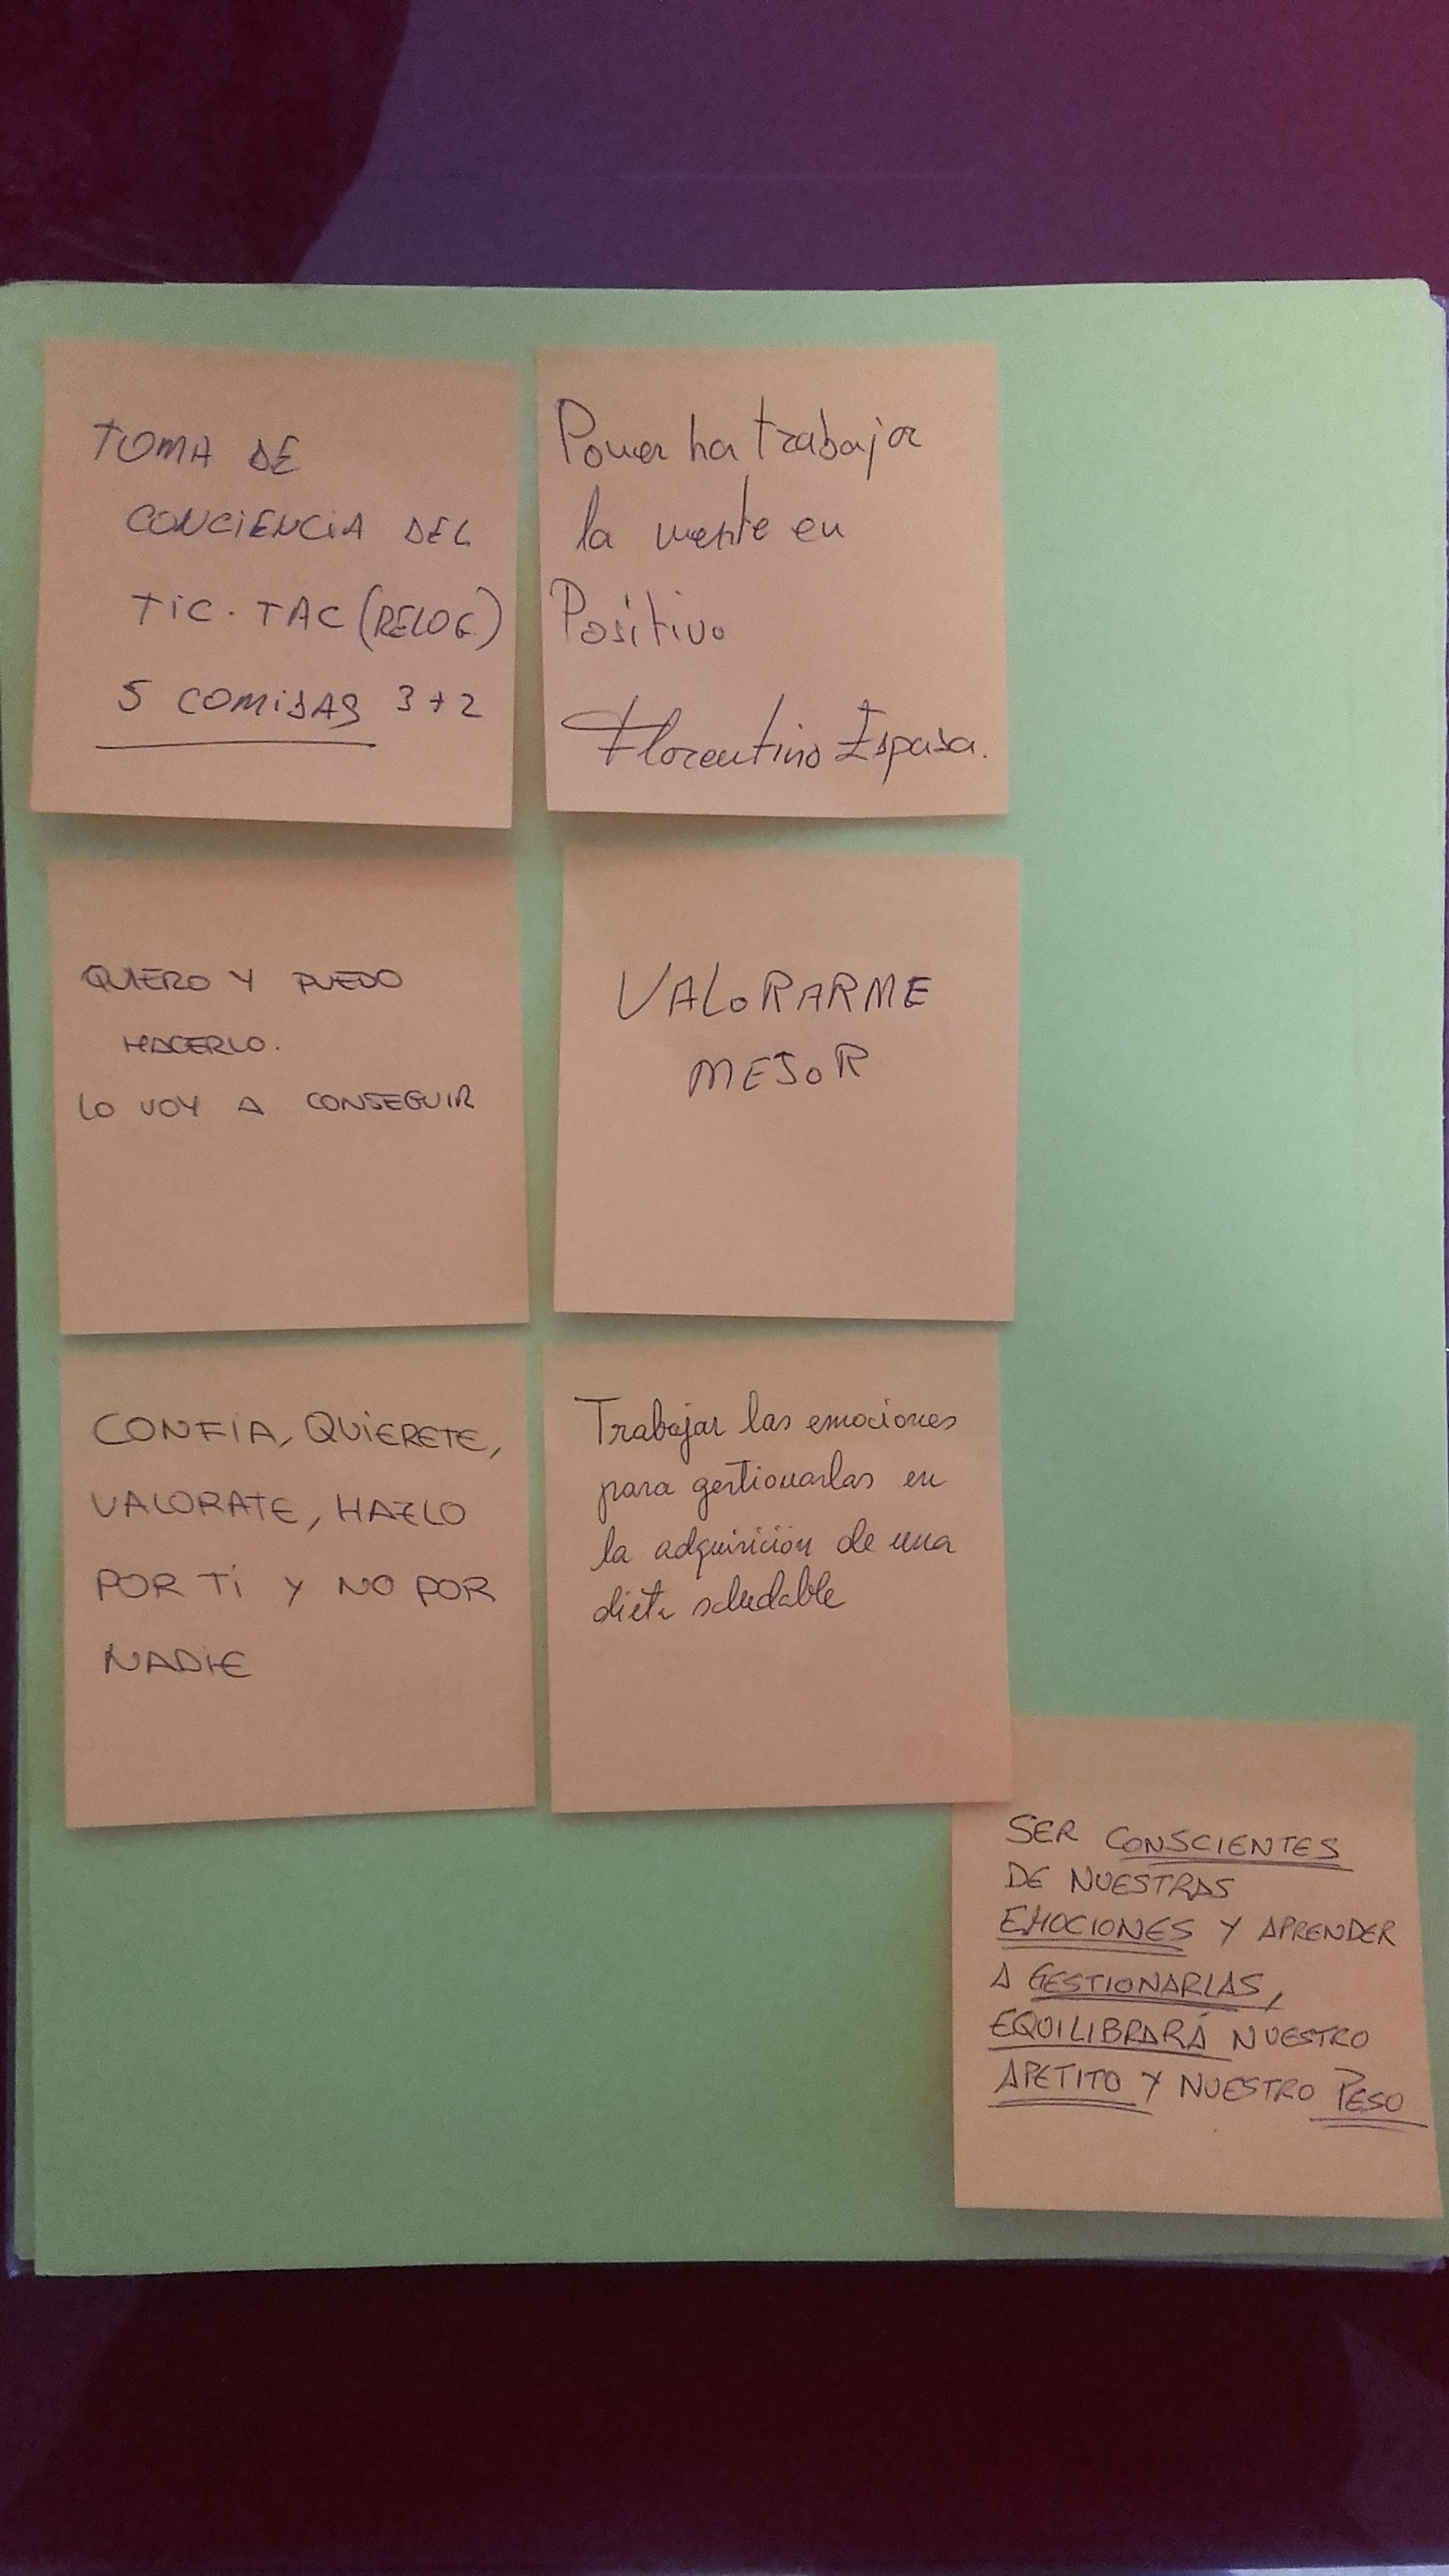 TOMA DE
CONCIENCIA DEL
TIC-TAC (RELOG)
5 COMIDAS 3+2
Poner ha trabajar
la mente en
Positivo
Florentino Espasa.
QUIERO Y PUEDO
HACERLO.
LO VOY A CONSEGUIR
VALORARME
MEJOR
CONFIA, QUIERETE,
VALORATE, HAZLO
POR TI Y NO POR
NADIE
Trabajar las emociones
para gestionarlas en
la adquisición de una
dieta saludable
SER CONSCIENTES
DE NUESTRAS
EMOCIONES Y APRENDER
A GESTIONARLAS,
EQUILIBRARÁ NUESTRO
APETITO Y NUESTRO PESO